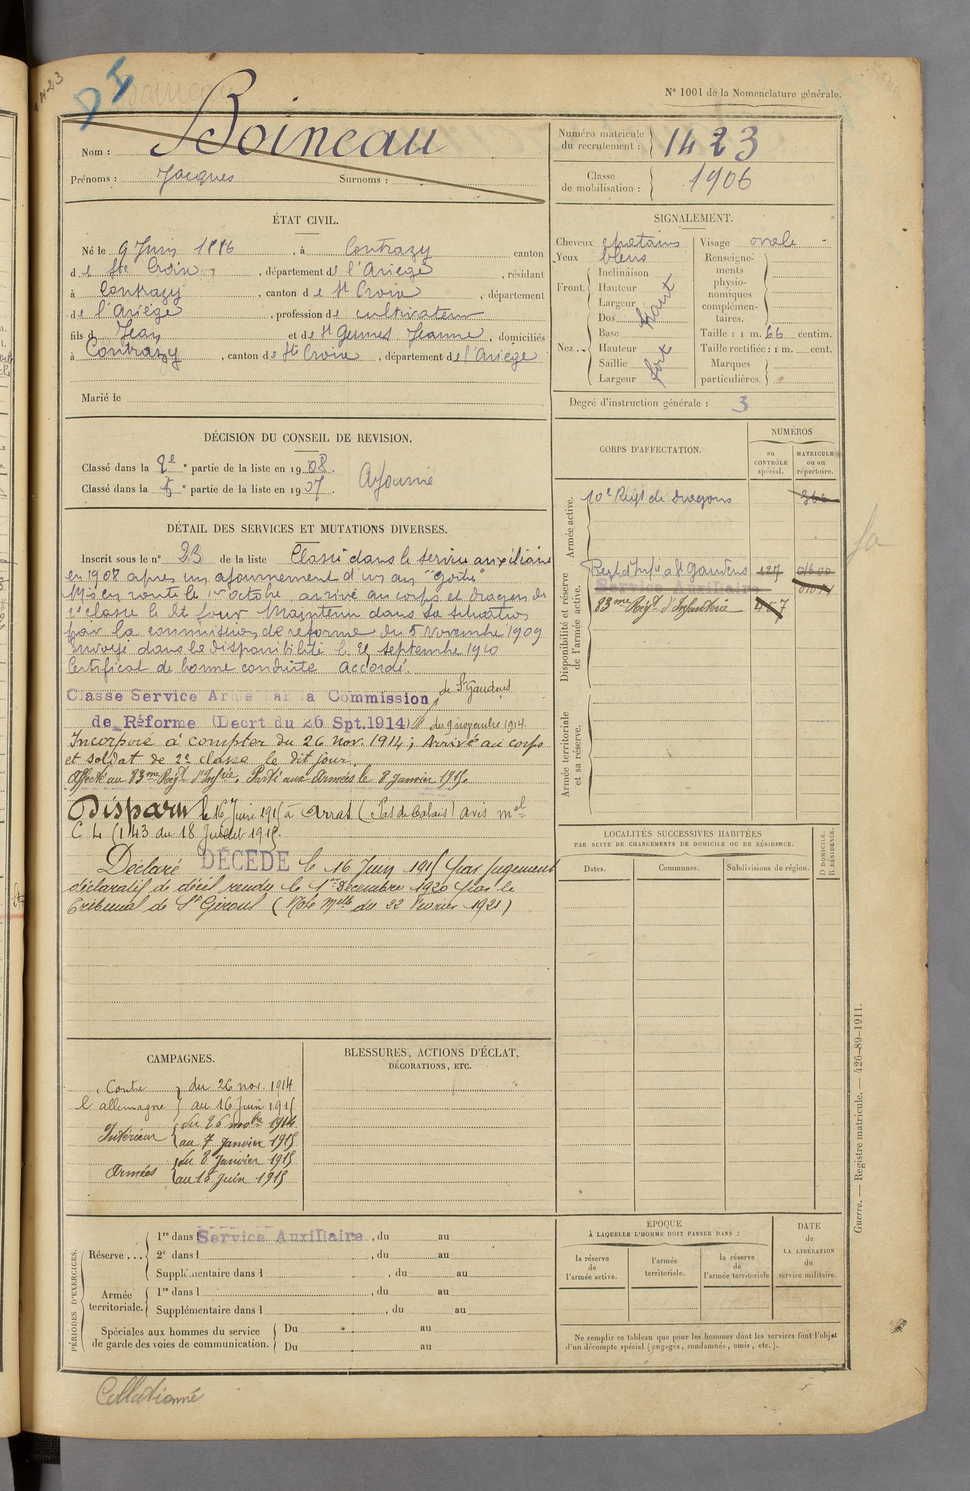 1423
N° 1001 de la Nomenclature générale.
Nom : Boineau
Prénoms : Jacques Surnoms :
Numéro matricule du recrutement : 1423
Classe de mobilisation : 1906
ÉTAT CIVIL.
Né le 9 Juin 1886, à Contrazy canton
de Ste Croix, département de l'Ariège, résidant
à Contrazy, canton de Ste Croix, département
de l'Ariège, profession de cultivateur
fils de Jean et de St Germes Jeanne, domiciliés
à Contrazy, canton de Ste Croix, département de l'Ariège
Marié le
SIGNALEMENT.
Cheveux chatains
Yeux bleus
Front. Inclinaison
Hauteur
Largeur haut
Nez. Dos
Base
Hauteur
Saillie fort
Largeur
Visage ovale
Renseignements physionomiques complémentaires.
Taille : 1 m. 66 centim.
Taille rectifiée : 1 m. cent.
Marques particulières.
Degré d'instruction générale : 3
DÉCISION DU CONSEIL DE REVISION.
Classé dans la 2e partie de la liste en 1908.
Classé dans la 5e partie de la liste en 1907. Ajourné
DÉTAIL DES SERVICES ET MUTATIONS DIVERSES.
Inscrit sous le n° 23 de la liste Classé dans le service auxiliaire
en 1908 après un ajournement d'un an "goitre"
Mis en route le 1er octobre, arrivé au corps et dragon de
2e classe le dit jour Maintenu dans sa situation
par la commission de réforme du 5 Novembre 1909
Envoyé dans la disponibilité le 25 septembre 1910
Certificat de bonne conduite accordé.
Classé Service Armé par la Commission de St Gaudens
de Réforme (Décrt du 26 Spt.1914) du 9 novembre 1914.
Incorporé à compter du 26 nov. 1914; Arrivé au corps
et soldat de 2e classe le dit jour.
Affecté au 83me Régt d'Infrie. Parti aux armées le 8 Janvier 1915.
Disparu le 16 Juin 1915 à Arras (Pas de Calais) avis mel
C L 1143 du 18 Juillet 1915.
Déclaré DÉCÉDÉ le 16 Juin 1915 par jugement
déclaratif de décès rendu le 1er Décembre 1920 par le
Tribunal de St Girons (Note Melle du 22 Février 1921)
CORPS D'AFFECTATION.
NUMÉROS
au CONTRÔLE spécial.
MATRICULE ou au répertoire.
Armée active.
10e Régt de dragons 366
Disponibilité et réserve de l'armée active.
Regt d'Infie à St Gaudens 127 01600
Service Auxiliaire
83me Régt. d'Infanterie
Armée territoriale et sa réserve.
LOCALITÉS SUCCESSIVES HABITÉES
PAR SUITE DE CHANGEMENTS DE DOMICILE OU DE RÉSIDENCE.
Dates. Communes. Subdivisions de région. D DOMICILE. R RÉSIDENCE.
CAMPAGNES.
Contre l'allemagne du 26 nov. 1914
au 16 Juin 1915
Intérieur du 26 novbre 1914
au 7 Janvier 1915
Armées du 8 Janvier 1915
au 16 Juin 1915
BLESSURES, ACTIONS D'ÉCLAT,
DÉCORATIONS, ETC.
PÉRIODES D'EXERCICES.
Réserve ... 1re dans l Service Auxiliaire, du au
2e dans l , du au
Supplémentaire dans l , du au
Armée territoriale. 1re dans l , du au
Supplémentaire dans l , du au
Spéciales aux hommes du service de garde des voies de communication. Du au
Du au
ÉPOQUE
À LAQUELLE L'HOMME DOIT PASSER DANS :
la réserve de l'armée active.
l'armée territoriale.
la réserve de l'armée territoriale
DATE DE LA LIBÉRATION du service militaire.
Ne remplir ce tableau que pour les hommes dont les services font l'objet
d'un décompte spécial (engagés, condamnés, omis, etc.).
Guerre. — Registre matricule. — 426-89-1911.
Collationné